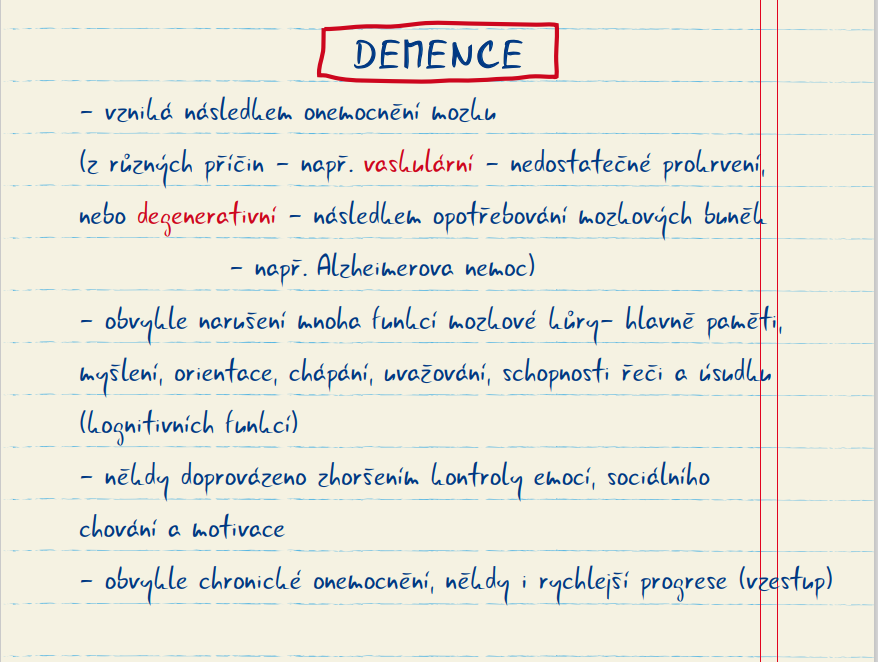 DEMENCE
- vzniká následkem onemocnění mozku
(z různých příčin - např. vaskulární - nedostatečné prokrvení,
nebo degenerativní - následkem opotřebování mozkových buněk
- např. Alzheimerova nemoc)
- obvykle narušení mnoha funkcí mozkové kůry- hlavně paměti,
myšlení, orientace, chápání, uvažování, schopnosti řeči a úsudku
(kognitivních funkcí)
- někdy doprovázeno zhoršením kontroly emocí, sociálního
chování a motivace
- obvykle chronické onemocnění, někdy i rychlejší progrese (vzestup)